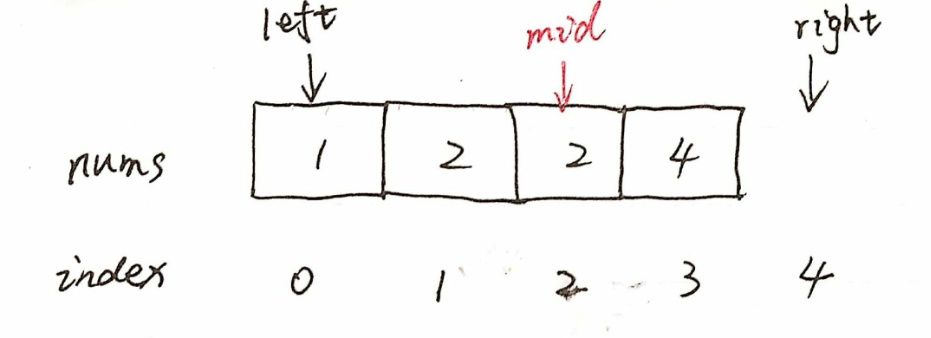 left mid right
nums 1 2 2 4
index 0 1 2 3 4